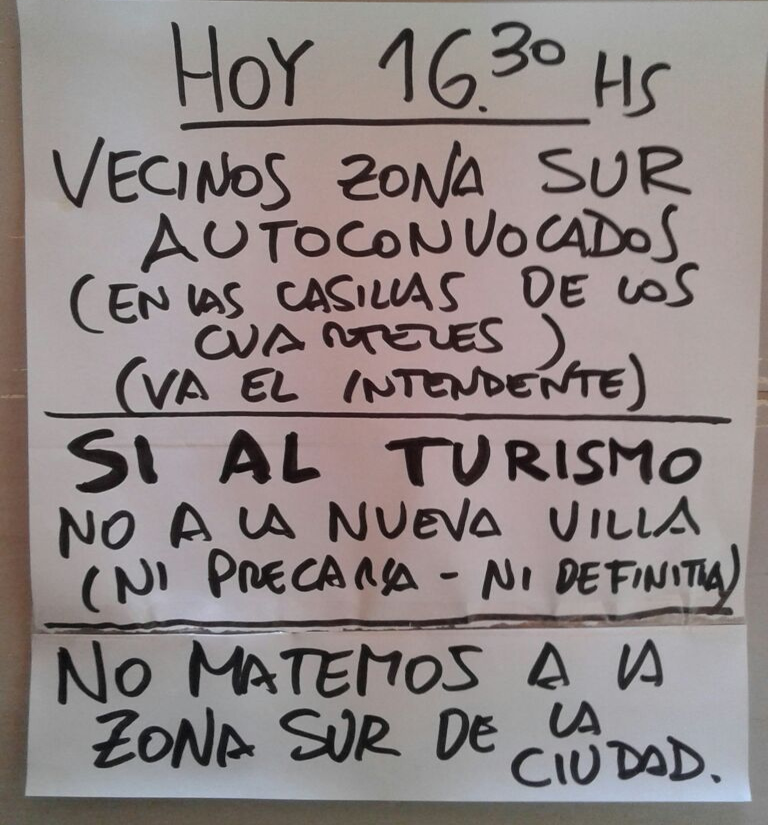 HOY 16.30 HS
VECINOS ZONA SUR
AUTOCONVOCADOS
(EN LAS CASILLAS DE LOS
CUARTELES)
(VA EL INTENDENTE)
SI AL TURISMO
NO A LA NUEVA VILLA
(NI PRECARIA - NI DEFINITIVA)
NO MATEMOS A LA
ZONA SUR DE LA
CIUDAD.